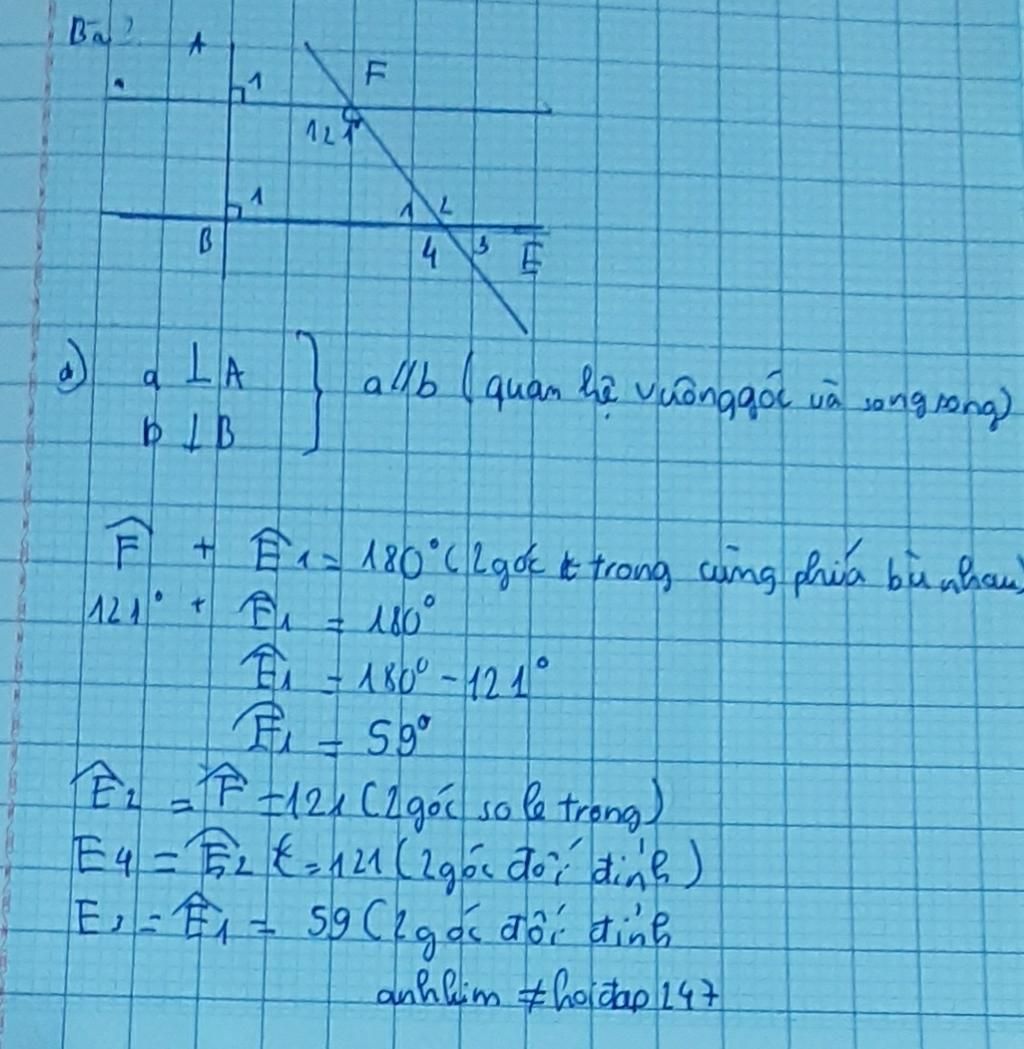 Bài 2
A
1
F
121°
1
1 2
B
4 3
E
a) a ⊥ A
b ⊥ B
} a//b (quan hệ vuông góc và song song)
F̂ + Ê1 = 180° (2 góc trong cùng phía bù nhau)
121° + Ê1 = 180°
Ê1 = 180° - 121°
Ê1 = 59°
Ê2 = F̂ = 121 (2 góc so le trong)
E4 = Ê2 = 121 (2 góc đối đỉnh)
E3 = Ê1 = 59 (2 góc đối đỉnh
≠ hoidap247